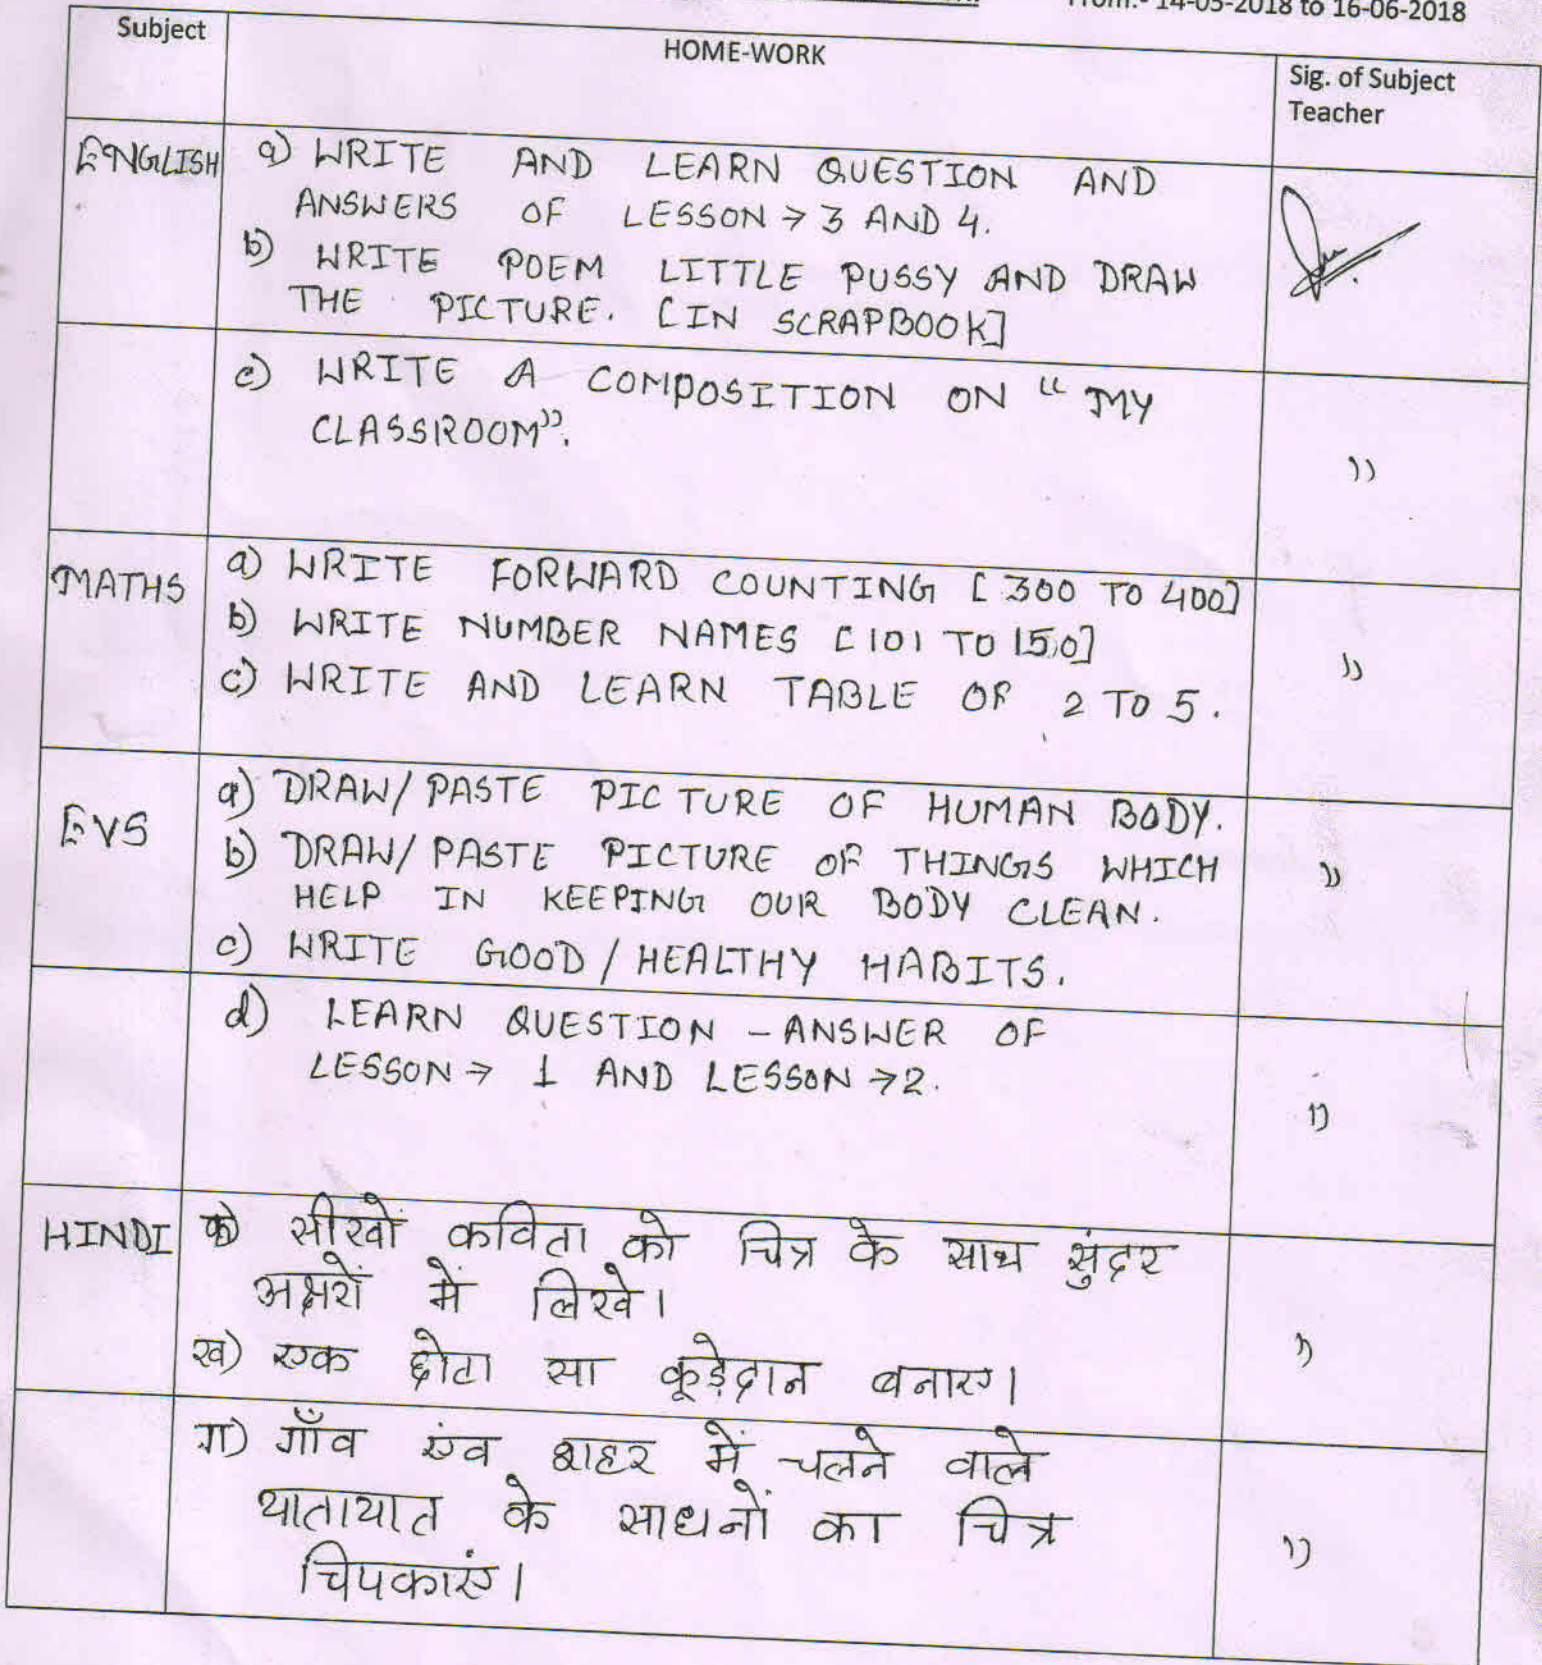 From:- 14-05-2018 to 16-06-2018
Subject
HOME-WORK
Sig. of Subject
Teacher
ENGLISH
a) WRITE AND LEARN QUESTION AND
ANSWERS OF LESSON → 3 AND 4.
b) WRITE POEM LITTLE PUSSY AND DRAW
THE PICTURE. [IN SCRAPBOOK]
c) WRITE A COMPOSITION ON “ MY
CLASSROOM”.
"
MATHS
a) WRITE FORWARD COUNTING [ 300 TO 400]
b) WRITE NUMBER NAMES [101 TO 150]
c) WRITE AND LEARN TABLE OF 2 TO 5.
"
EVS
a) DRAW/PASTE PICTURE OF HUMAN BODY.
b) DRAW/PASTE PICTURE OF THINGS WHICH
HELP IN KEEPING OUR BODY CLEAN.
c) WRITE GOOD/HEALTHY HABITS.
"
d) LEARN QUESTION - ANSWER OF
LESSON → 1 AND LESSON → 2.
"
HINDI
क) सीखों कविता को चित्र के साथ सुंदर
अक्षरों में लिखे।
ख) एक छोटा सा कूड़ेदान बनाए।
"
ग) गाँव एंव शहर में चलने वाले
यातायात के साधनों का चित्र
चिपकाएं।
"